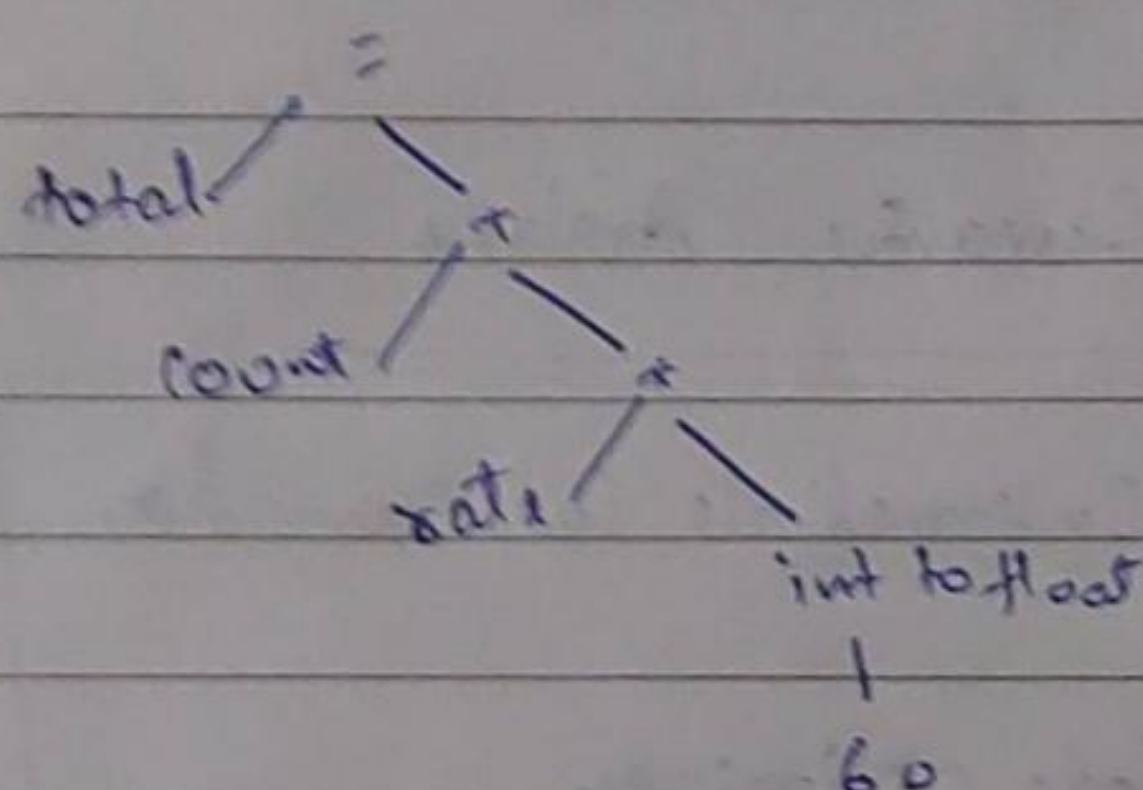 =
total
+
count
*
rate
int to float
60